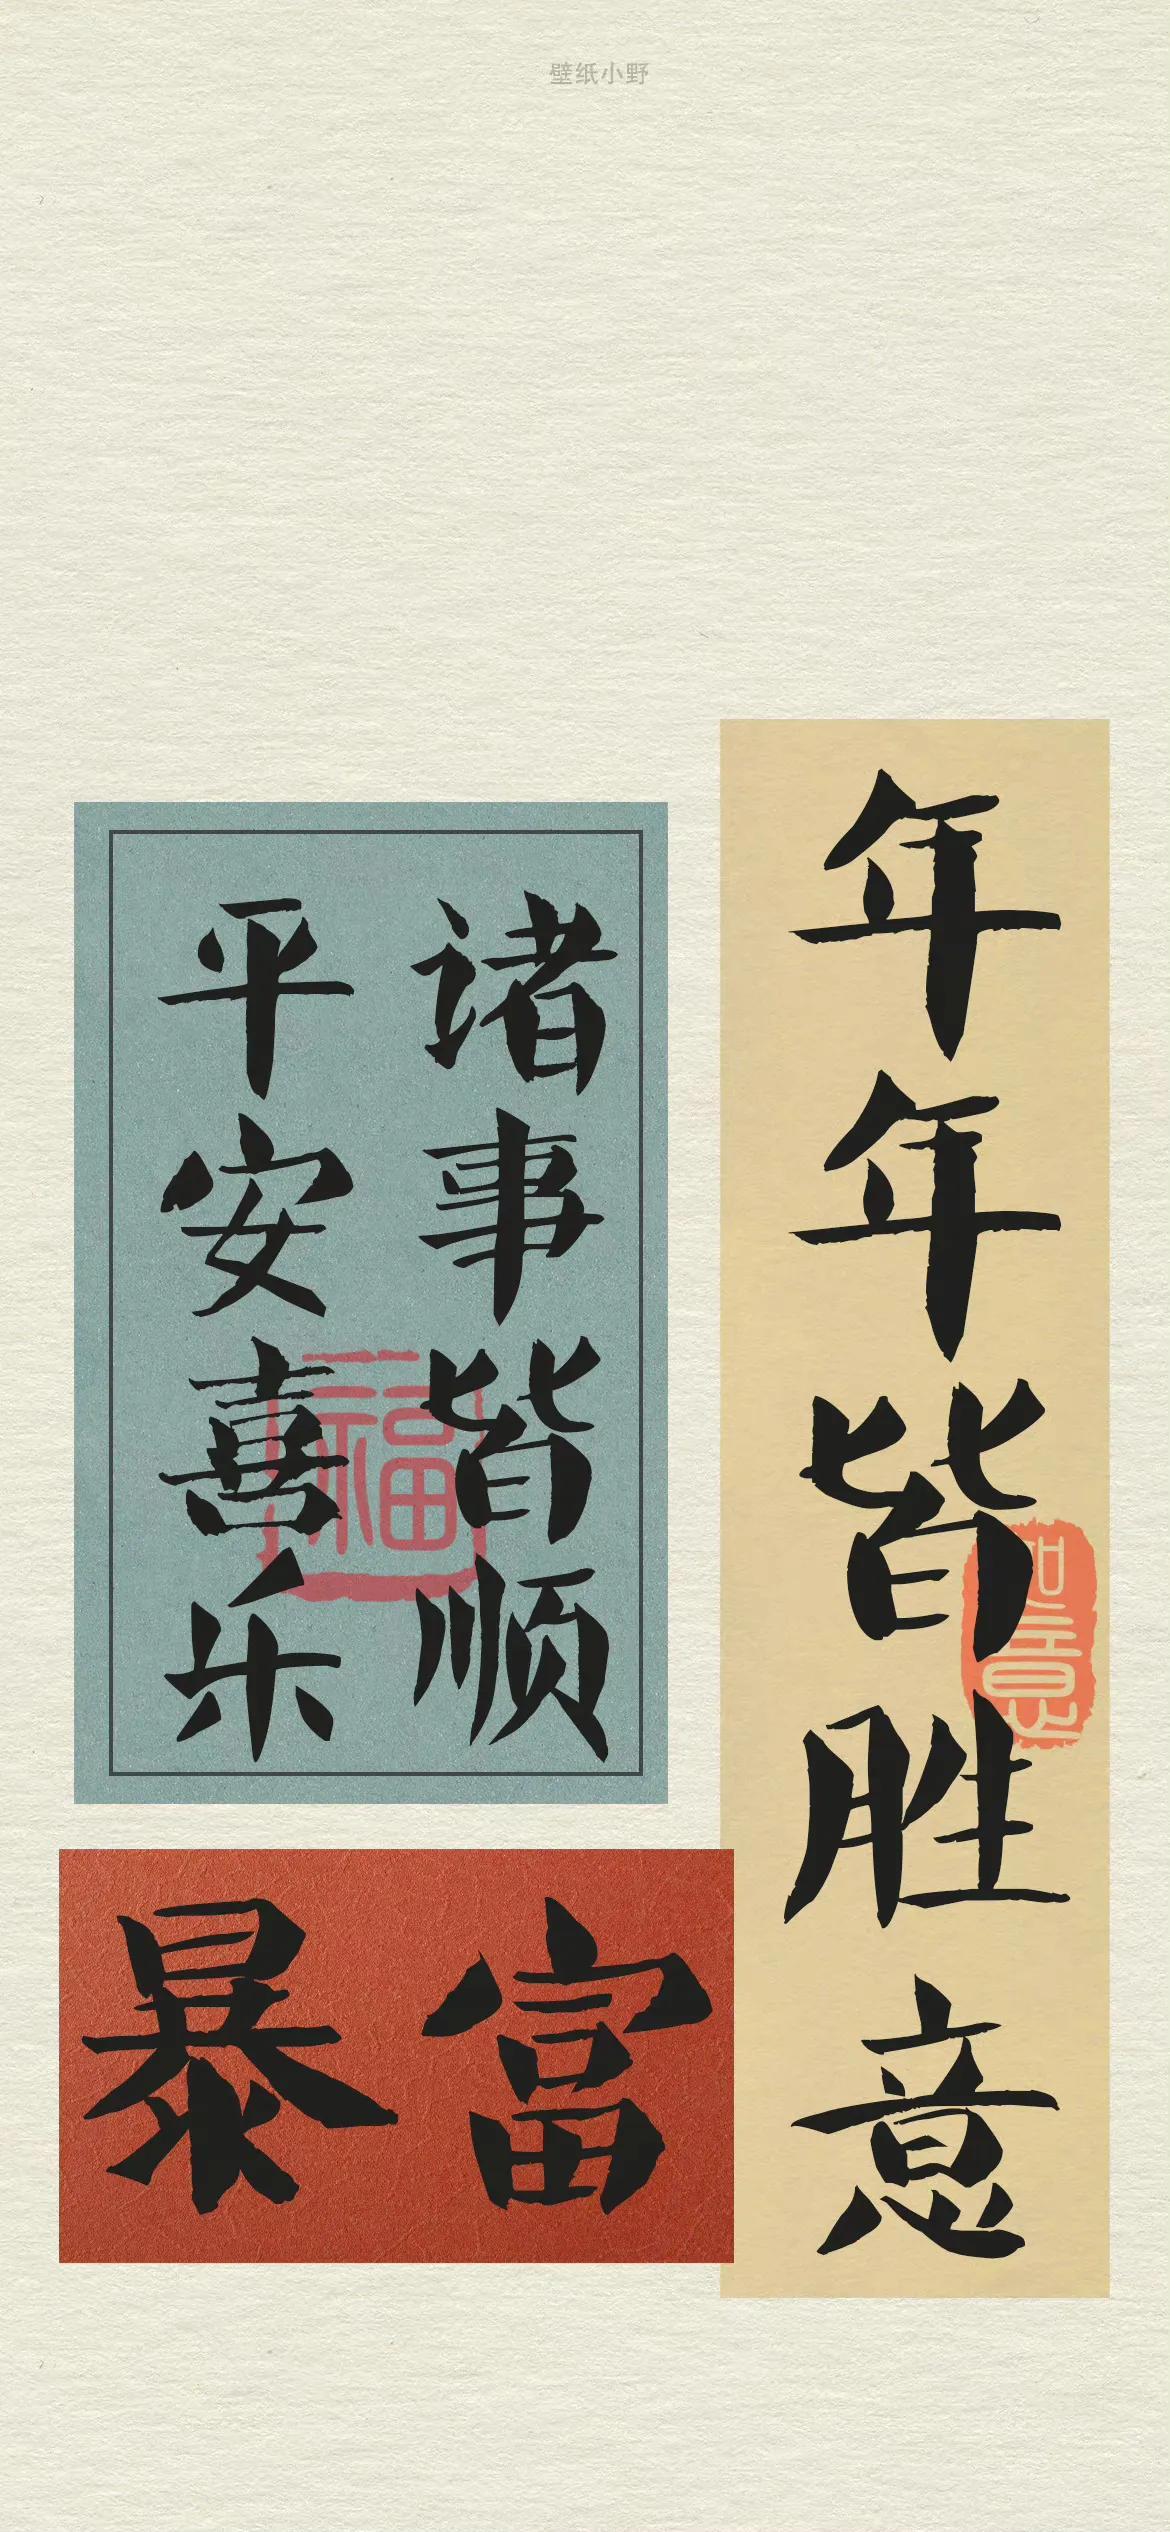 壁纸小野
年年皆胜意
诸事皆顺
平安喜乐
福
如意
暴富